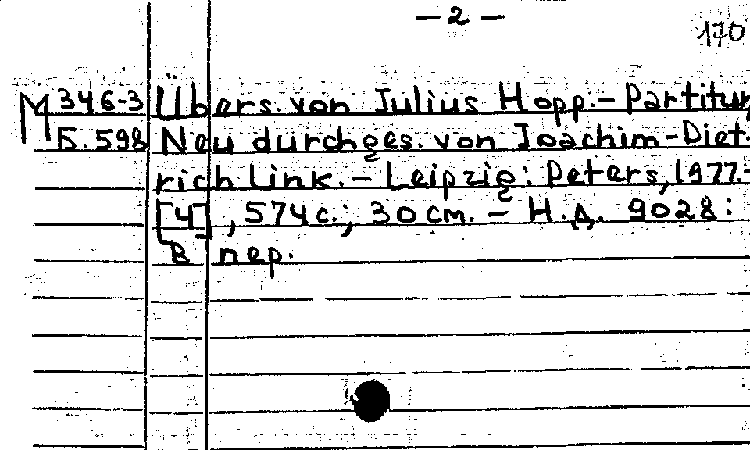 — 2 —
170
М 346-3 Übers. von Julius Hopp. – Partitur,
Б. 598 Neu durchges. von Joachim-Diet-
rich Link. – Leipzig: Peters, 1977. –
[4], 574 с.; 30 см. – Н.д. 9028:
В пер.